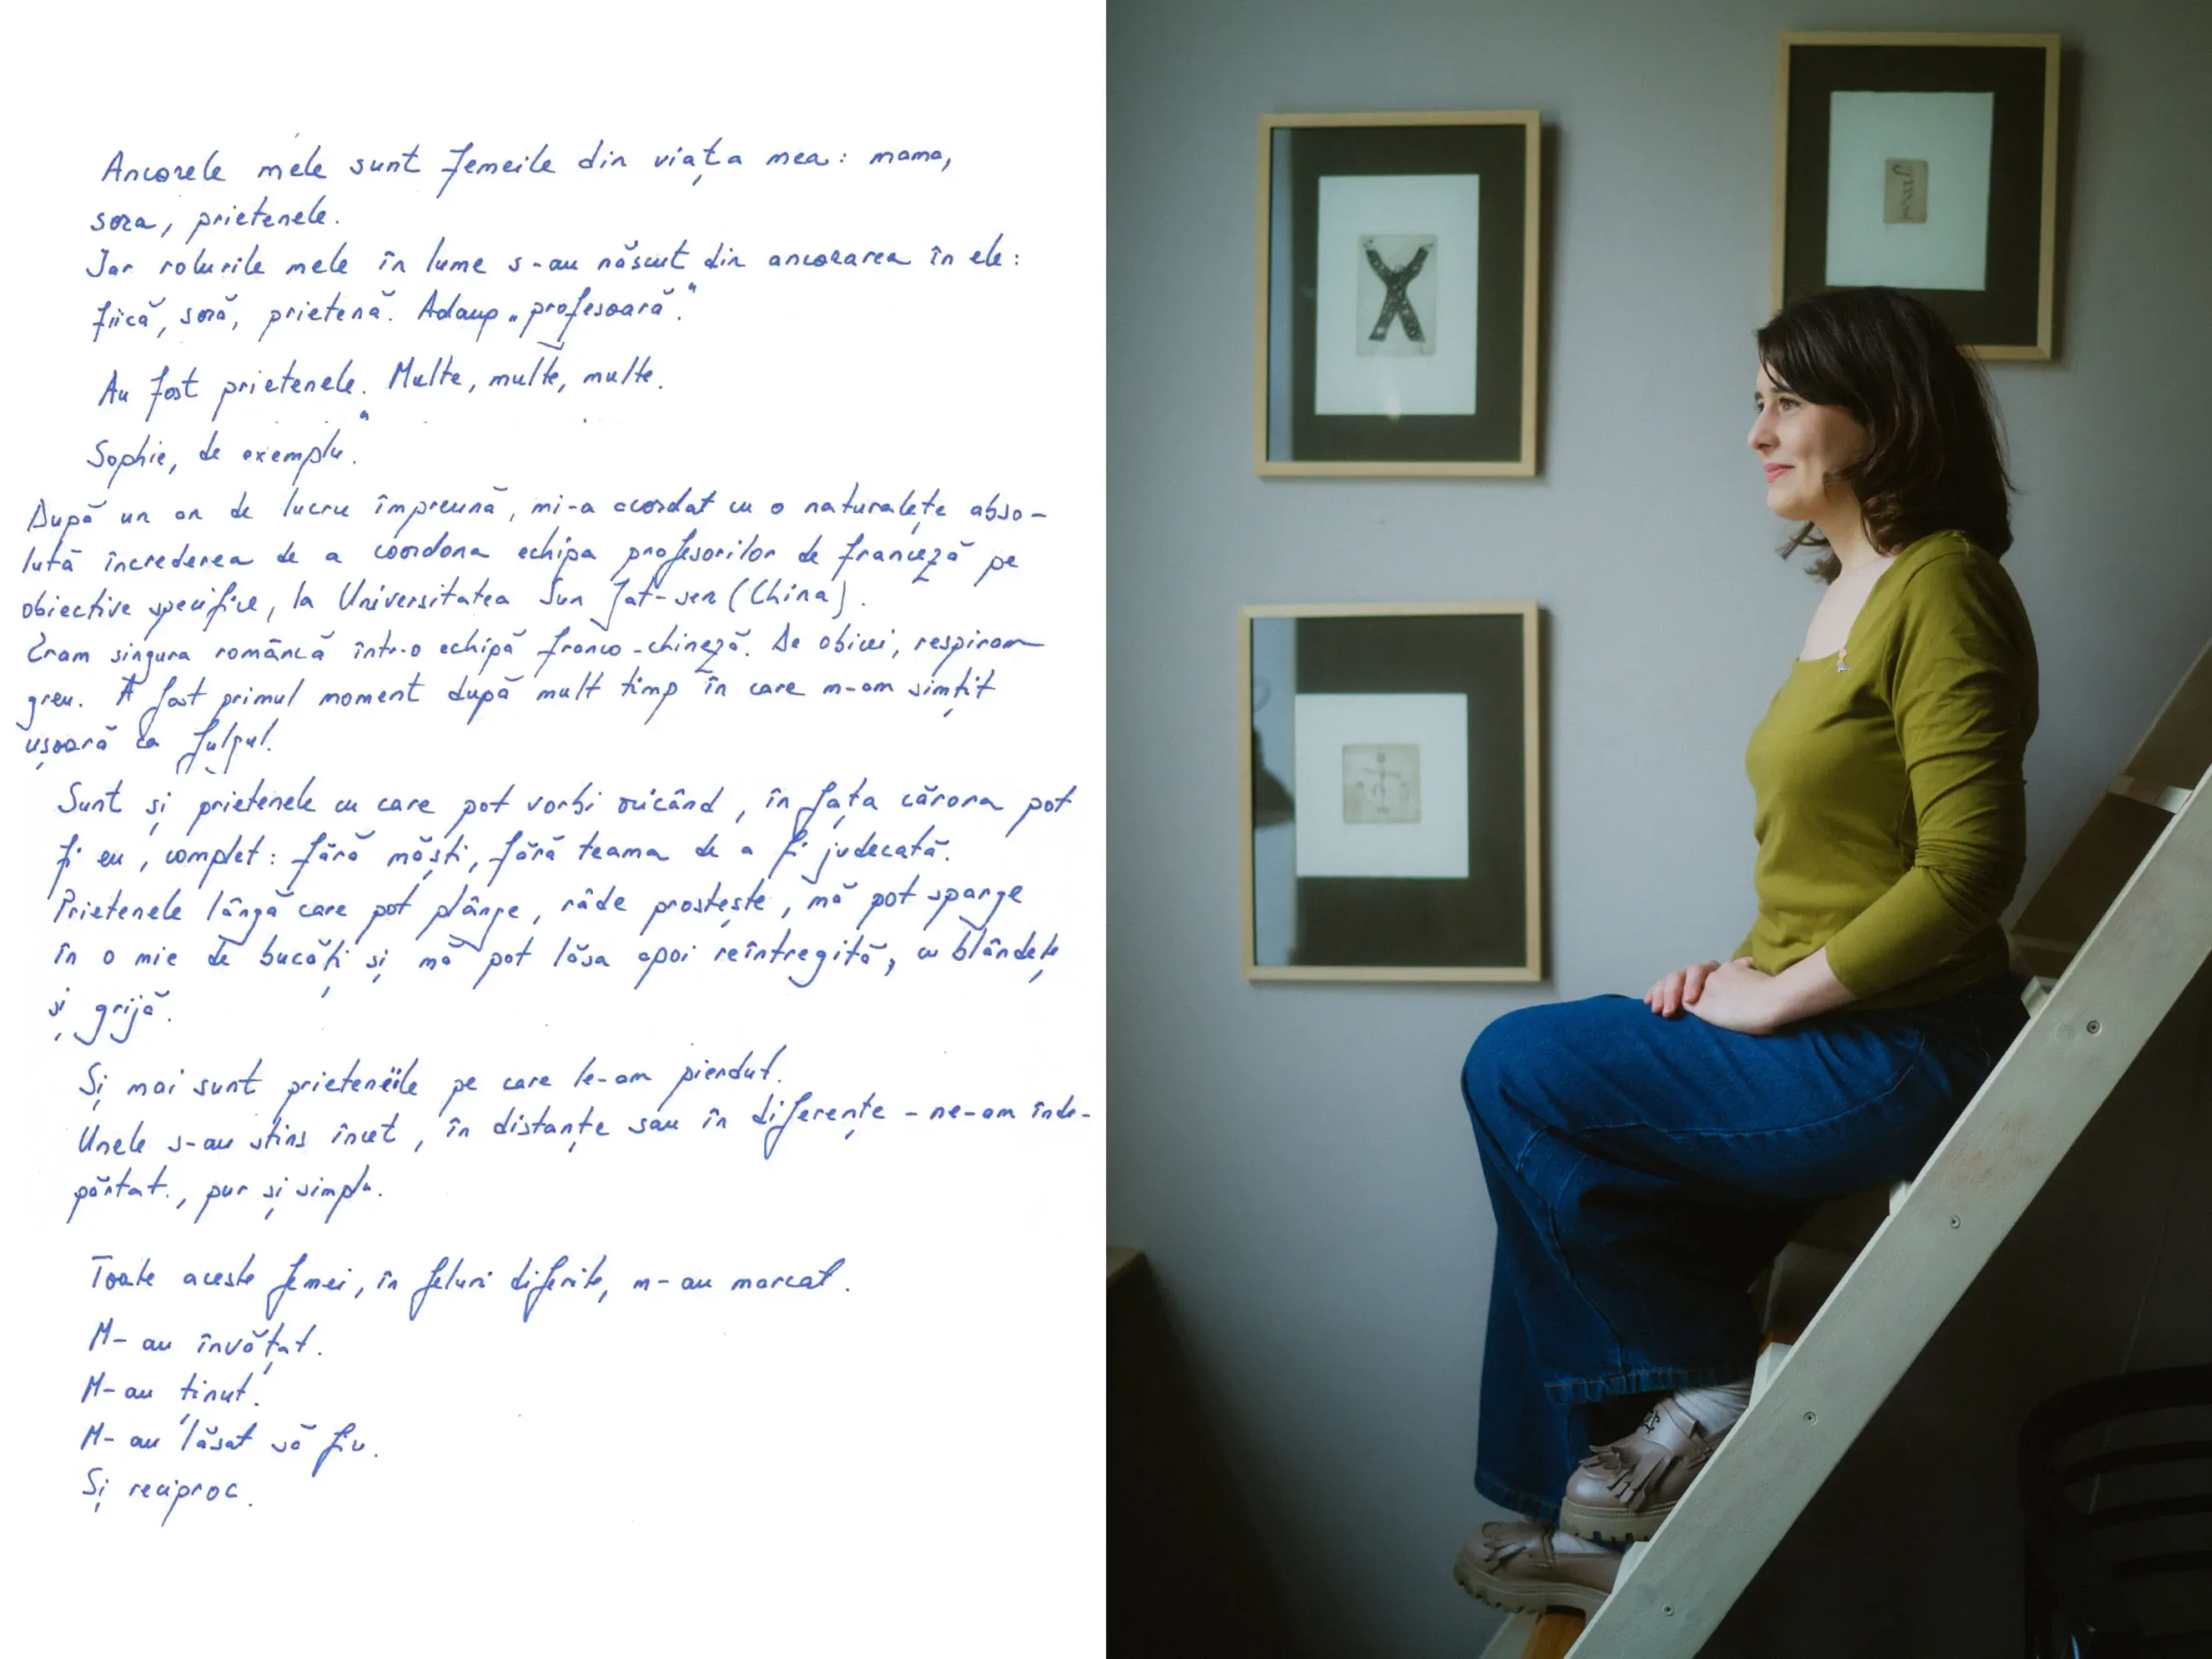 Ancorele mele sunt femeile din viața mea: mama,
sora, prietenele.
Iar rolurile mele în lume s-au născut din ancorarea în ele:
fiică, soră, prietenă. Adaug „profesoară”.
Au fost prietenele. Multe, multe, multe.
Sophie, de exemplu.
După un an de lucru împreună, mi-a acordat cu o naturalețe abso-
lută încrederea de a coordona echipa profesorilor de franceză pe
obiective specifice, la Universitatea Sun Yat-sen (China).
Eram singura româncă într-o echipă franco-chineză. De obicei, respiram
greu. A fost primul moment după mult timp în care m-am simțit
ușoară ca fulgul.
Sunt și prietenele cu care pot vorbi oricând, în fața cărora pot
fi eu, complet: fără măști, fără teama de a fi judecată.
Prietenele lângă care pot plânge, râde prostește, mă pot sparge
în o mie de bucăți și mă pot lăsa apoi reîntregită, cu blândețe
și grijă.
Și mai sunt prieteniile pe care le-am pierdut.
Unele s-au stins încet, în distanțe sau în diferențe - ne-am înde-
părtat, pur și simplu.
Toate aceste femei, în feluri diferite, m-au marcat.
M-au învățat.
M-au ținut.
M-au lăsat să fiu.
Și reciproc.
X